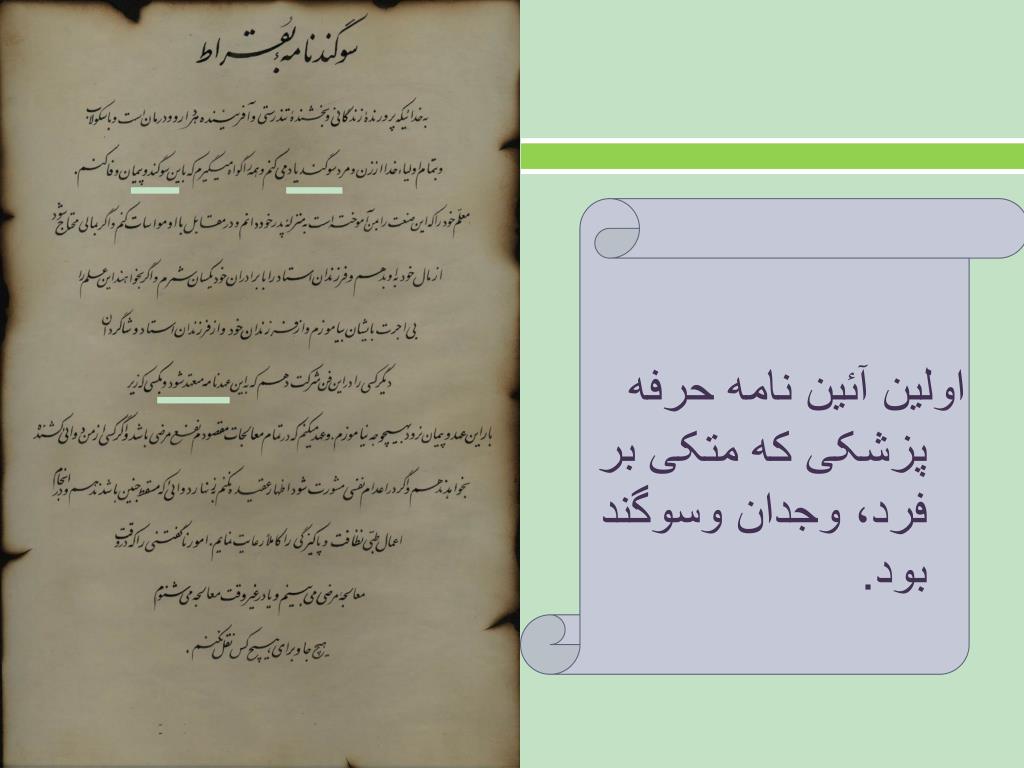 سوگندنامهٔ بقراط
به خدائیکه پرورندهٔ زندگانی و بخشندهٔ تندرستی و آفریننده هر دارو و درمان است و باسکولاب
و بتمام اولیاء خدا از زن و مرد سوگند یاد می‌کنم و همه را گواه میگیرم که باین سوگند و پیمان وفا کنم.
معلم خود را که این صنعت را بمن آموخته است به منزلهٔ پدر خود دانم و در مقابل با او مواسات کنم و اگر بمالی محتاج شود
از مال خود باو بدهم و فرزندان استاد را با برادران خود یکسان شمرم و اگر بخواهند این علم را
بی اجرت بایشان بیاموزم و از فرزندان خود و از فرزندان استاد و شاگردان
دیگر کسی را در این فن شرکت دهم که باین عهدنامه معتقد شود و بکسی که زیر
بار این عهد و پیمان نرود بهیچوجه نیاموزم. وعد میکنم که در تمام معالجات مقصودم نفع مرضی باشد و اگر کسی از من دوائی کشنده
بخواهد ندهم و اگر در اعدام نفسی مشورت شود اظهار عقیده نکنم و نیز بزنها دوائی که مسقط جنین باشد ندهم و در انجام
اعمال طبی نظافت و پاکیزگی را کاملا رعایت نمایم. امور ناگفتنی را که در وقت
معالجه مرضی می بینم و یا در غیر وقت معالجه می شنوم
هیچ جا و برای هیچ کس نقل نکنم.
اولین آئین نامه حرفه
پزشکی که متکی بر
فرد، وجدان وسوگند
بود.